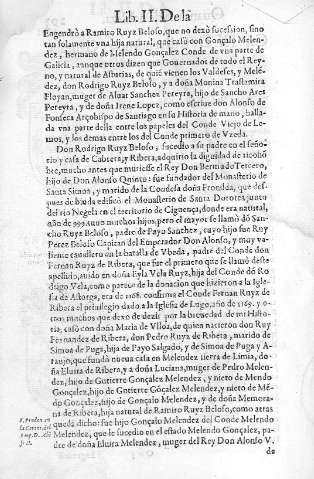 Lib. II. De la
Engendrò a Ramiro Ruyz Beloso, que no dexò sucession, sino
tan solamente vna hija natural, que casò con Gonçalo Melen-
dez, hermano de Melendo Gonçalez Conde de vna parte de
Galicia, aunque otros dizen que Gouernador de todo el Rey-
no, y natural de Asturias, de quiẽ vienen los Valdeses, y Melẽ-
dez, don Rodrigo Ruyz Beloso, y a doña Monina Trastamira
Floyan, muger de Aluar Sanchez Pereyra, hijo de Sancho Ares
Pereyra, y de doña Irene Lopez, como escriue don Alonso de
Fonseca Arçobispo de Santiago en su Historia de mano, halla-
da vna parte della entre los papeles del Conde Viejo de Le-
mos, y los demas entre los del Conde primero de Vzeda.
Don Rodrigo Ruyz Beloso, sucedio a su padre en el seño-
rio y casa de Cabrera, y Ribera, adquirio la dignidad de ricohõ
bre, mucho antes que muriesse el Rey Don Bermudo Tercero,
hijo de Don Alonso Quinto: fue fundador del Monasterio de
Santa Simoa, y marido de la Condesa doña Fronilda, que des-
pues de biuda edificò el Monasterio de Santa Dorotea junto
del rio Negela en el territorio de Ciguença, donde era natural,
año de 999. tuuo muchos hijos, pero el mayor se llamò dõ San-
cho Ruyz Beloso, padre de Payo Sanchez, cuyo hijo fue Ruy
Perez Beloso Capitan del Emperador Don Alonso, y muy va-
liente caudillo en la batalla de Vbeda, padre del Conde don
Fernan Ruyz de Ribera, que fue el primero que se llamò deste
apellido, auido en doña Eyla Vela Ruyz, hija del Conde dõ Ro
drigo Vela, como parece de la donacion que hizieron a la Igle-
sia de Astorga, era de 1168. confirma el Conde Fernan Ruyz de
Ribera el priuilegio dado a la Iglesia de Lugo, año de 1169. y o-
tros muchos que dexo de dezir por la breuedad de mi Histo-
ria, casò con doña Maria de Vlloa, de quien nacieron don Ruy
Fernandez de Ribera, don Pedro Ruyz de Ribera, marido de
Simoa de Puga, hija de Payo Salgado, y de Simoa de Puga y A-
raujo, que fundò nueua casa en Melendez tierra de Limia, do-
ña Eluira de Ribera, y a doña Luciana, muger de Pedro Melen-
dez, hijo de Gonçalez Melendez, y nieto de Mendo
Gonçalez, hijo de Gutierre Gõcalez Melendez, y nieto de Mẽ-
do Gonçalez, hijo de Gonçalo Melendez, y de doña Memora-
na de Ribera, hija natural de Ramiro Ruyz Beloso, como atras
queda dicho: fue hijo Gonçalo Melendez del Conde Melendo
Melendez, que le sucedio en el estado Melendo Gonçalez, pa-
dre de doña Eluira Melendez, muger del Rey Don Alonso V.
de